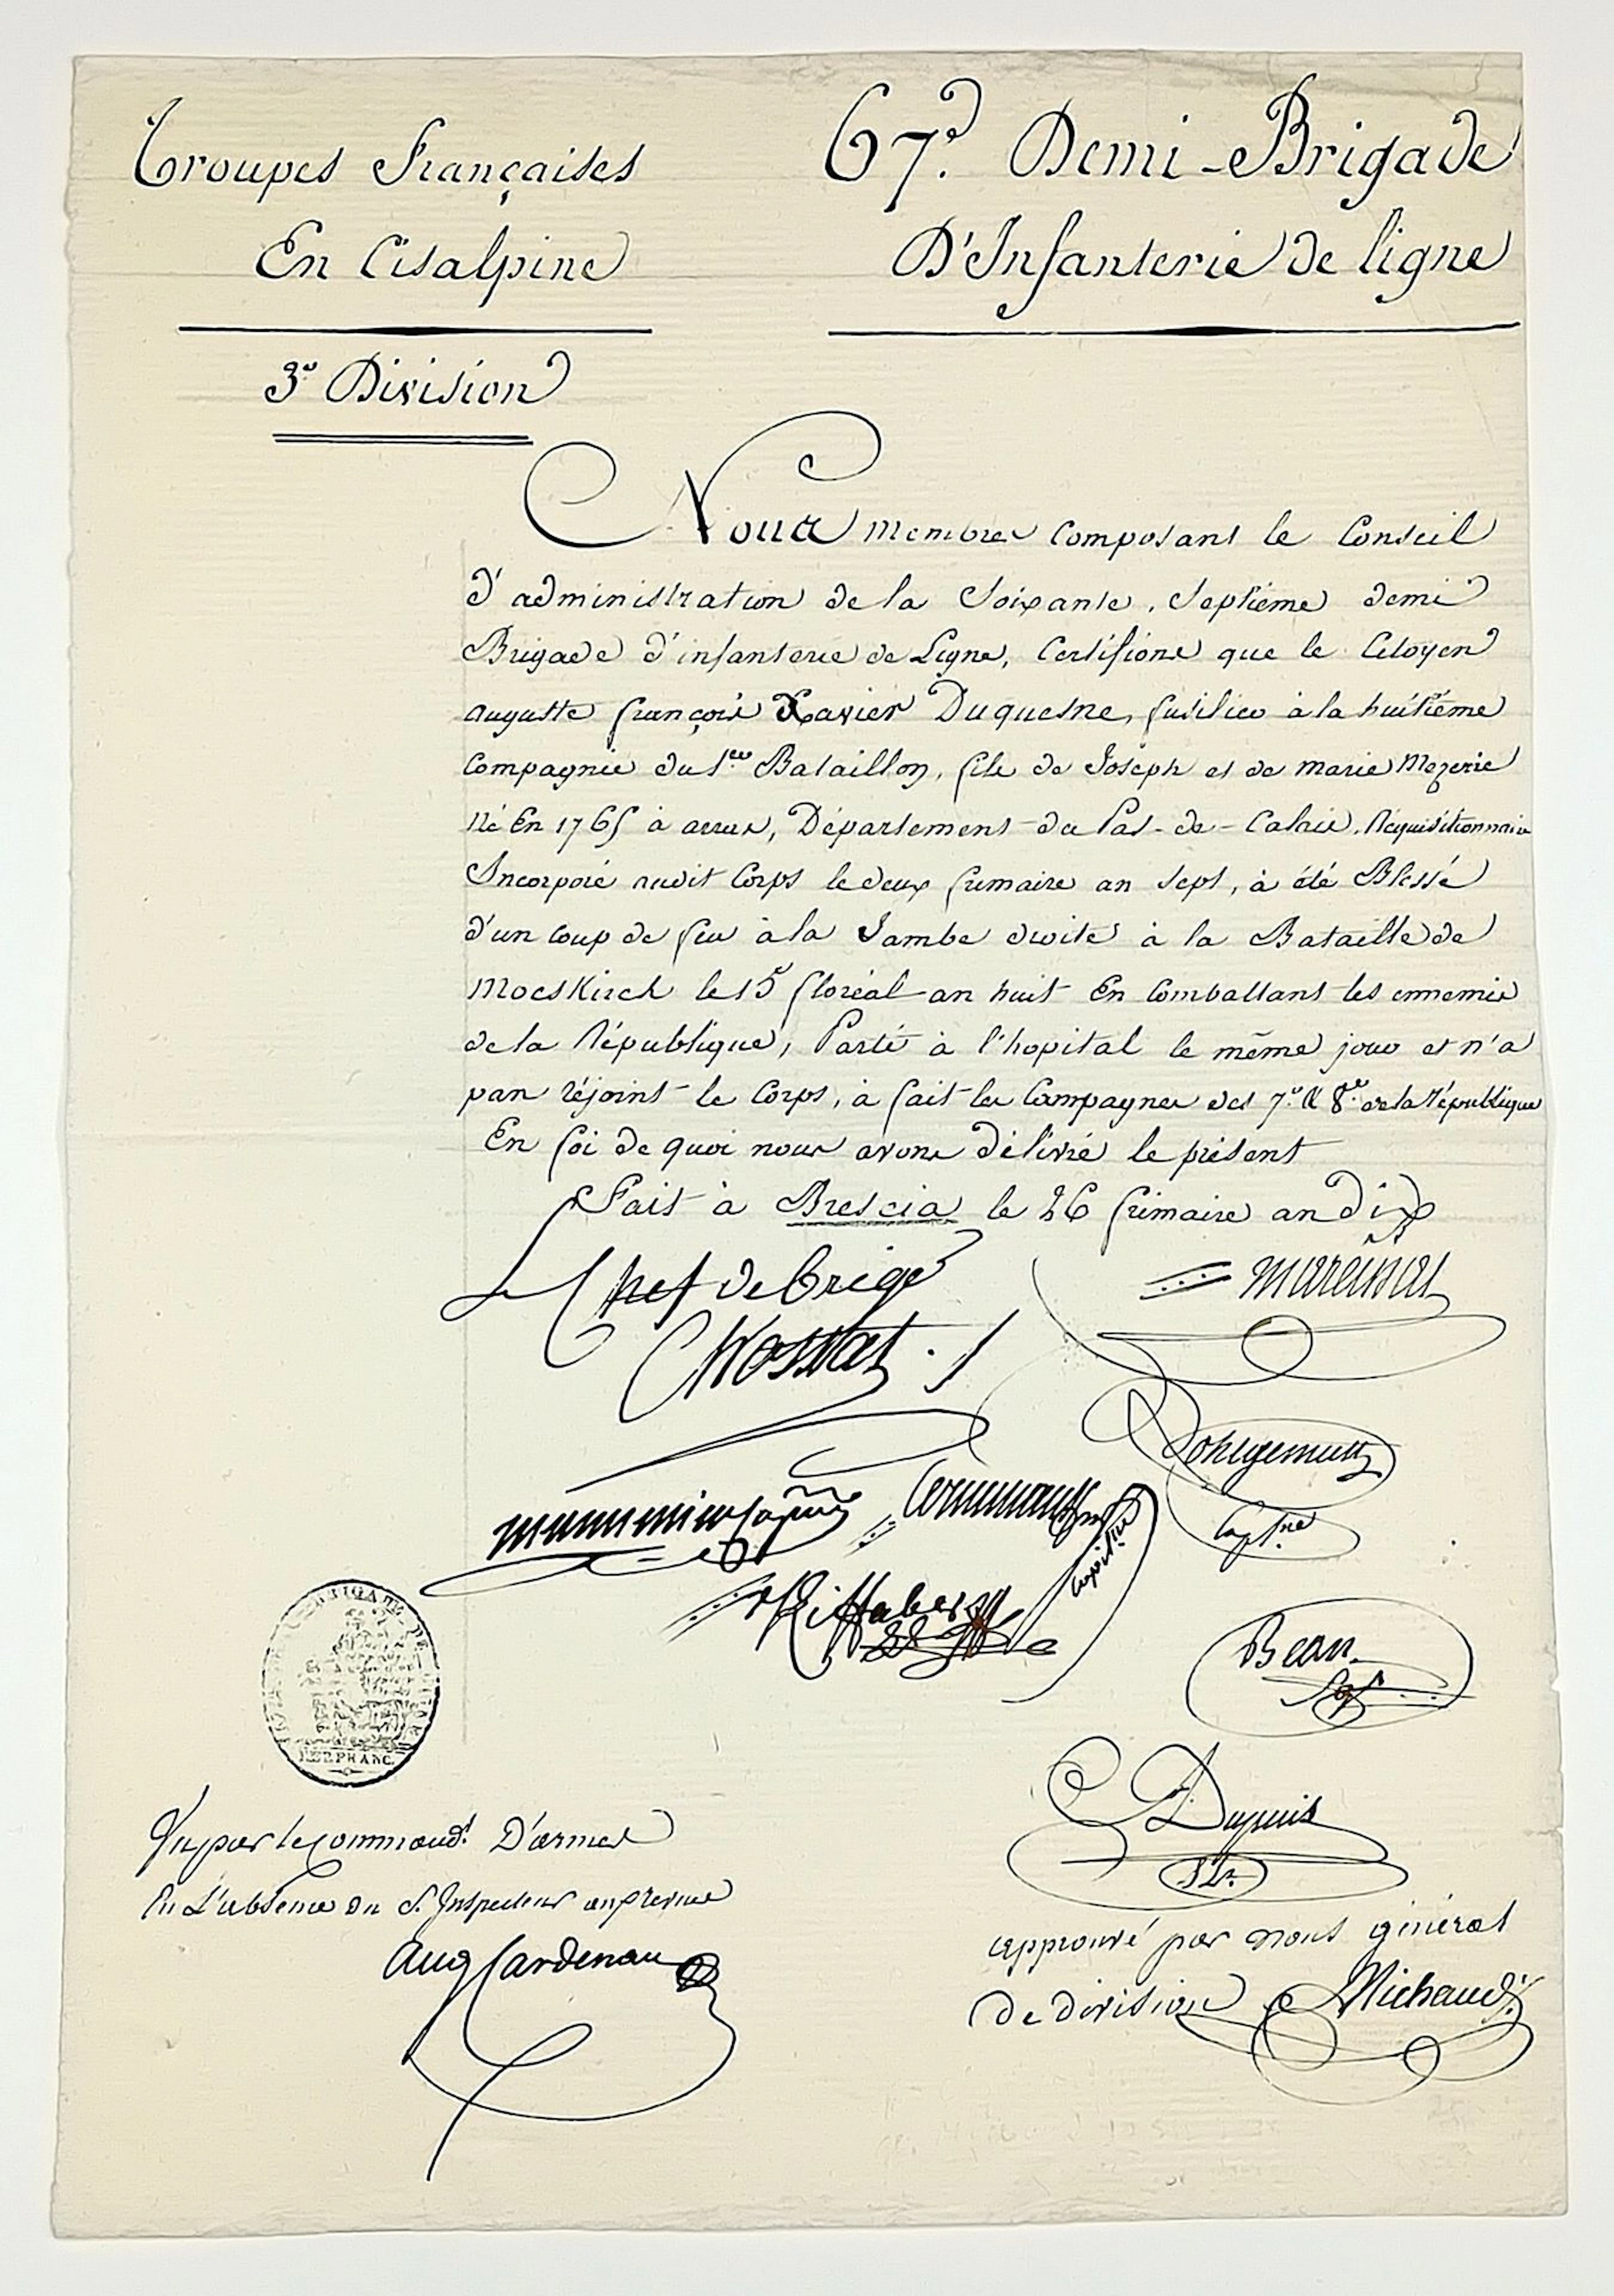 Troupes Françaises
En Cisalpine
3e Division
67e. Demi-Brigade
D'Infanterie de ligne
Nous membres composant le Conseil
d'administration de la Soixante, Septième demi
Brigade d'infanterie de Ligne, Certifions que le Citoyen
auguste françois Xavier Duquesne, fusilier à la huitième
Compagnie du 1er Bataillon, fils de Joseph et de marie Mezerie
Né En 1765 à arras, Département du Pas-de-Calais, Réquisitionnaire
Incorporé audit Corps le deux frimaire an sept, à été Blessé
d'un coup de feu à la Jambe droite à la Bataille de
Moeskirch le 15 floréal an huit En Combattant les ennemis
de la République, Parti à l'hopital le même jour et n'a
pas réjoint le Corps, à fait les Campagnes des 7e. & 8e. de la République
En foi de quoi nous avons délivré le présent
Fait à Brescia le 26 frimaire an dix
Le Chef de brige
Cap.ne
Bean
Dupuis
REP FRANC.
Vu par le Command.t D'armes
En L'absence du S. Inspecteur aux revues
Aug Cardenau
approuvé par nous général
de division Michaud